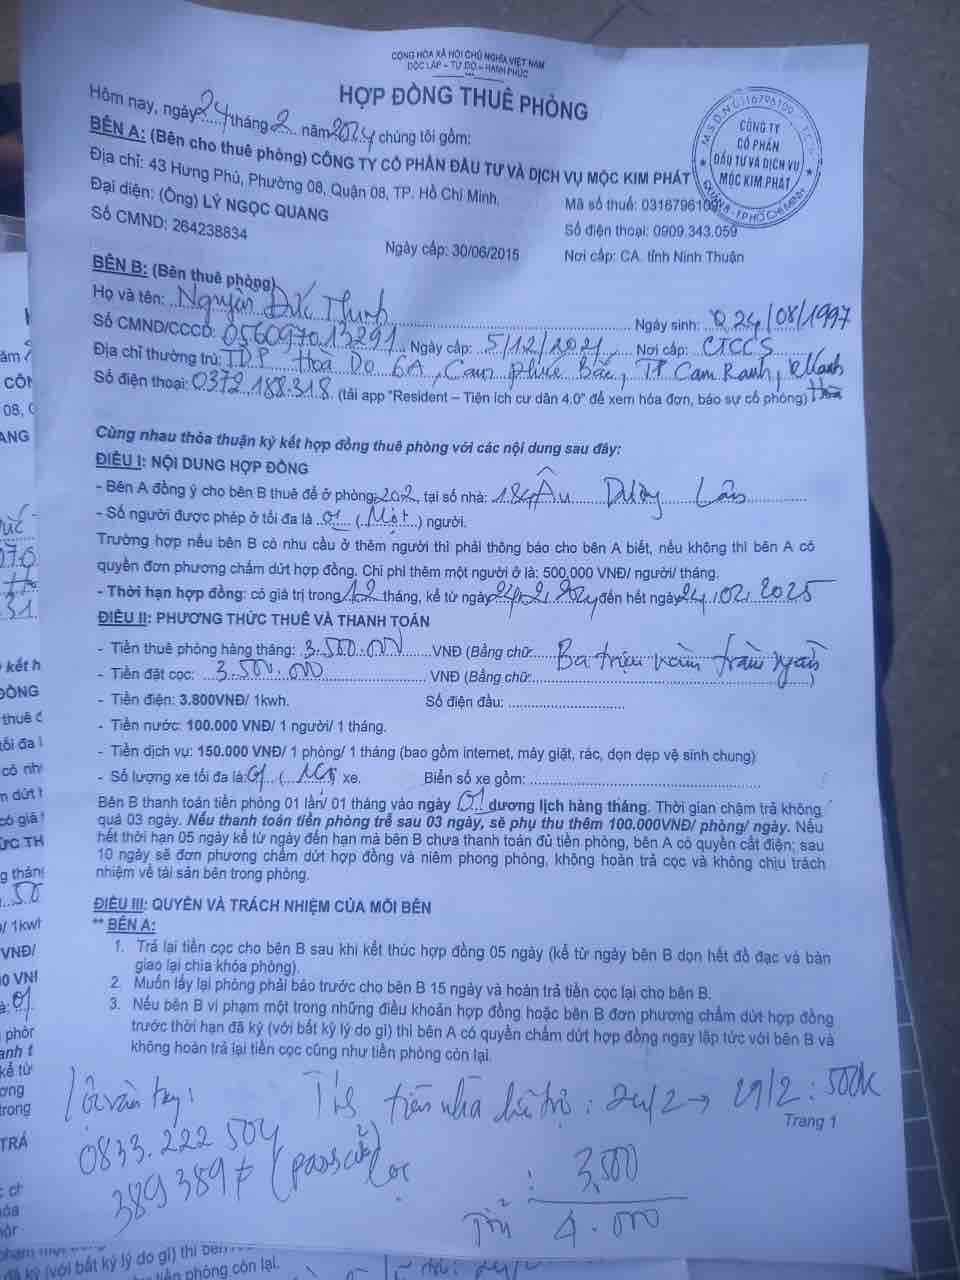 CỘNG HÒA XÃ HỘI CHỦ NGHĨA VIỆT NAM
ĐỘC LẬP – TỰ DO – HẠNH PHÚC
HỢP ĐỒNG THUÊ PHÒNG
Hôm nay, ngày 24 tháng 2 năm 2024 chúng tôi gồm:
BÊN A: (Bên cho thuê phòng) CÔNG TY CỔ PHẦN ĐẦU TƯ VÀ DỊCH VỤ MỘC KIM PHÁT
Địa chỉ: 43 Hưng Phú, Phường 08, Quận 08, TP. Hồ Chí Minh.
Mã số thuế: 0316796109
Đại diện: (Ông) LÝ NGỌC QUANG
Số điện thoại: 0909.343.059
Số CMND: 264238834
Ngày cấp: 30/06/2015
Nơi cấp: CA. tỉnh Ninh Thuận
CÔNG TY
CỔ PHẦN
ĐẦU TƯ VÀ DỊCH VỤ
MỘC KIM PHÁT
BÊN B: (Bên thuê phòng)
Họ và tên: Nguyễn Đức Thịnh Ngày sinh: 24/08/1997
Số CMND/CCCD: 056097013291 Ngày cấp: 5/12/2021 Nơi cấp: CTCCS
Địa chỉ thường trú: TDP Hoà Do 6A, Cam Phúc Bắc, TP Cam Ranh, Khánh Hoà
Số điện thoại: 0372.188.318 (tải app "Resident – Tiện ích cư dân 4.0" để xem hóa đơn, báo sự cố phòng)
Cùng nhau thỏa thuận ký kết hợp đồng thuê phòng với các nội dung sau đây:
ĐIỀU I: NỘI DUNG HỢP ĐỒNG
- Bên A đồng ý cho bên B thuê để ở phòng 202, tại số nhà: 184 Âu Dương Lân
- Số người được phép ở tối đa là 01 (Một) người.
Trường hợp nếu bên B có nhu cầu ở thêm người thì phải thông báo cho bên A biết, nếu không thì bên A có
quyền đơn phương chấm dứt hợp đồng. Chi phí thêm một người ở là: 500.000 VNĐ/ người/ tháng.
- Thời hạn hợp đồng: có giá trị trong 12 tháng, kể từ ngày 24/2/2024 đến hết ngày 24/02/2025
ĐIỀU II: PHƯƠNG THỨC THUÊ VÀ THANH TOÁN
- Tiền thuê phòng hàng tháng: 3.500.000 VNĐ (Bằng chữ: Ba triệu năm trăm ngàn
- Tiền đặt cọc: 3.500.000 VNĐ (Bằng chữ:
- Tiền điện: 3.800VNĐ/ 1kwh. Số điện đầu:
- Tiền nước: 100.000 VNĐ/ 1 người/ 1 tháng.
- Tiền dịch vụ: 150.000 VNĐ/ 1 phòng/ 1 tháng (bao gồm internet, máy giặt, rác, dọn dẹp vệ sinh chung)
- Số lượng xe tối đa là: 01 (Một) xe. Biển số xe gồm:
Bên B thanh toán tiền phòng 01 lần/ 01 tháng vào ngày 01 dương lịch hàng tháng. Thời gian chậm trả không
quá 03 ngày. Nếu thanh toán tiền phòng trễ sau 03 ngày, sẽ phụ thu thêm 100.000VNĐ/ phòng/ ngày. Nếu
hết thời hạn 05 ngày kể từ ngày đến hạn mà bên B chưa thanh toán đủ tiền phòng, bên A có quyền cắt điện; sau
10 ngày sẽ đơn phương chấm dứt hợp đồng và niêm phong phòng, không hoàn trả cọc và không chịu trách
nhiệm về tài sản bên trong phòng.
ĐIỀU III: QUYỀN VÀ TRÁCH NHIỆM CỦA MỖI BÊN
** BÊN A:
1. Trả lại tiền cọc cho bên B sau khi kết thúc hợp đồng 05 ngày (kể từ ngày bên B dọn hết đồ đạc và bàn
giao lại chìa khóa phòng).
2. Muốn lấy lại phòng phải báo trước cho bên B 15 ngày và hoàn trả tiền cọc lại cho bên B.
3. Nếu bên B vi phạm một trong những điều khoản hợp đồng hoặc bên B đơn phương chấm dứt hợp đồng
trước thời hạn đã ký (với bất kỳ lý do gì) thì bên A có quyền chấm dứt hợp đồng ngay lập tức với bên B và
không hoàn trả lại tiền cọc cũng như tiền phòng còn lại.
vân tay: tiền nhà : 24/2 → 29/2 : 500k
Trang 1
0833.222.504
3893897 (pass
: 3,500
4.000